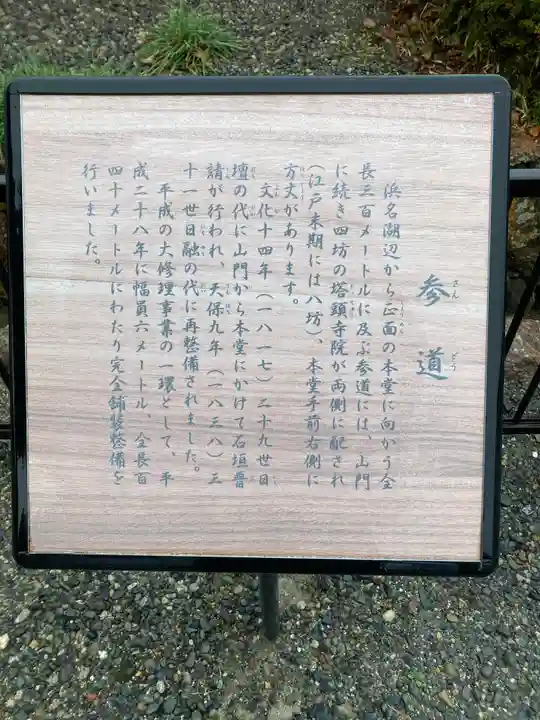 参道
浜名湖辺から正面の本堂に向かう全
長三百メートルに及ぶ参道には、山門
に続き四坊の塔頭寺院が両側に配され
(江戸末期には八坊)、本堂手前右側に
方丈があります。
文化十四年(一八一七)二十九世日
壇の代に山門から本堂にかけて石垣普
請が行われ、天保九年(一八三八)三
十一世日融の代に再整備されました。
平成の大修理事業の一環として、平
成二十八年に幅員六メートル、全長百
四十メートルにわたり完全舗装整備を
行いました。